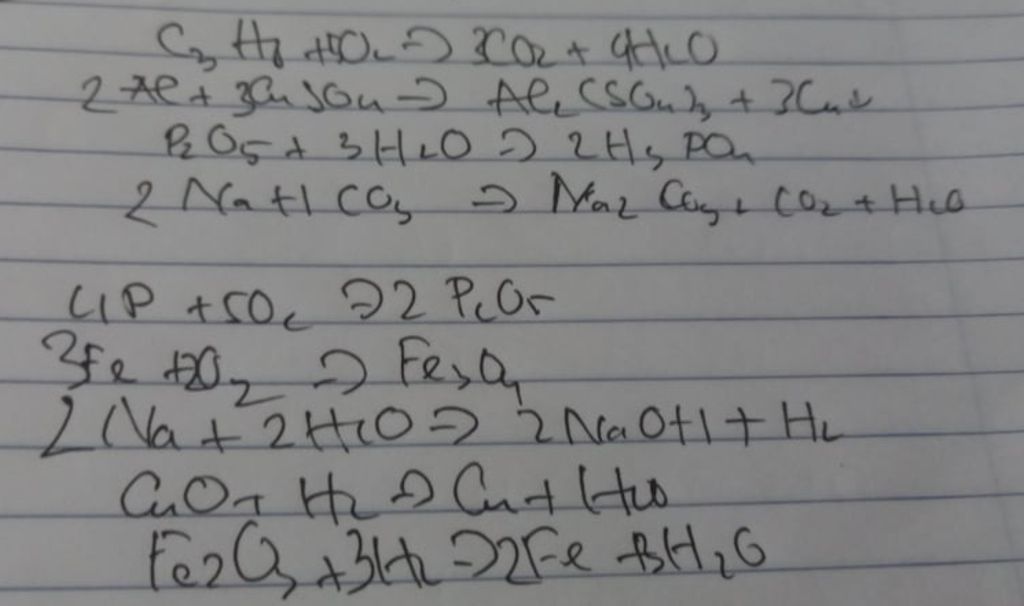 C₃H₈ + 5O₂ ⇒ 3CO₂ + 4H₂O
2Al + 3CuSO₄ ⇒ Al₂(SO₄)₃ + 3Cu↓
P₂O₅ + 3H₂O ⇒ 2H₃PO₄
2NaHCO₃ ⇒ Na₂CO₃ + CO₂ + H₂O
4P + 5O₂ ⇒ 2P₂O₅
3Fe + 2O₂ ⇒ Fe₃O₄
2Na + 2H₂O ⇒ 2NaOH + H₂
CuO + H₂ ⇒ Cu + H₂O
Fe₂O₃ + 3H₂ ⇒ 2Fe + 3H₂O